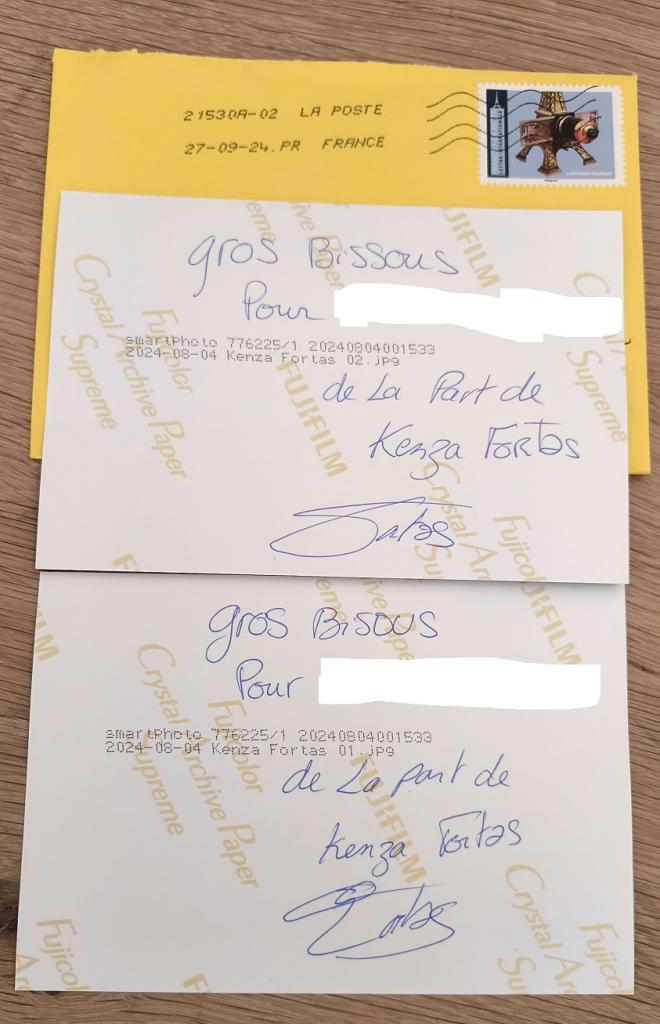 21530A-02 LA POSTE
27-09-24.PR FRANCE
LETTRE INTERNATIONALE
LANTERNE MAGIQUE
gros Bissous
Pour
smartPhoto 776225/1 20240804001533
2024-08-04 Kenza Fortas 02.jpg
de La Part de
Kenza Fortas
Fortas
Crystal Archive Paper
Supreme
Fujicolor
FUJIFILM
gros Bisous
Pour
smartPhoto 776225/1 20240804001533
2024-08-04 Kenza Fortas 01.jpg
de La part de
Kenza Fortas
Fortas
Fujicolor
Crystal Archive Paper
Supreme
FUJIFILM